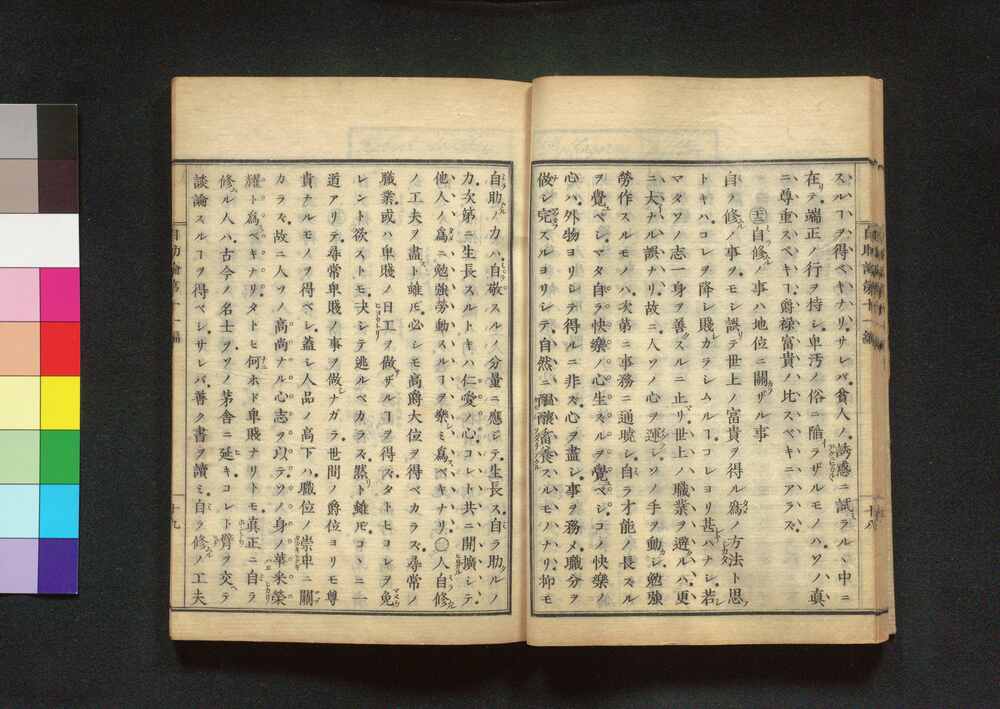 スルヿヲ得ベキナリ。サレバ貧人ノ誘惑ニ試ラルヽ中ニ
在テ端正ノ行ヲ持シ卑汚ノ俗ニ陥ラザルモノハソノ眞
ニ尊重スベキヿ爵禄富貴ノ比スベキニアラズ
自修ノ事ハ地位ニ關ザル事
自ラ修ルノ事ヲモシ誤テ世上ノ富貴ヲ得ル爲ノ方法ト思
トキハコレヲ降シ賤カラシムルヿコレヨリ甚ハナシ若
マタソノ志一身ヲ善スルニ止リ世上ノ職業ヲ避ルハ更
ニ大ナル誤ナリ故ニ人ソノ心ヲ運シソノ手ヲ動シ勉強
勞作スルモノハ次第ニ事務ニ通曉シ自ラ才能ノ長ズル
ヲ覺ベシマタ自ラ快樂ノ心生ズルヲ覺ベシコノ快樂ノ
心ハ外物ヨリシテ得ルニ非ズ心ヲ盡シ事ヲ務メ職分ヲ
做シ完スルヨリシテ自然ニ醞釀畜養スルモノナリ抑モ
自助ノ力ハ自敬スルノ分量ニ應ジテ生長ス自ラ助ルノ
力次第ニ生長スルトキハ仁愛ノ心コレト共ニ開擴シテ
他人ノ爲ニ勉強勞動スルヿヲ樂ミ爲ベキナリ〇人自修
ノ工夫ヲ盡ト雖𪜈必シモ高爵大位ヲ得ベカラズ尋常ノ
職業或ハ卑賤ノ日工ヲ做ザルヿヲ得ズタトヒコレヲ免
レント欲ストモ决シテ逃ルベカラズ然リト雖𪜈コヽニ一
道アリテ尋常卑賤ノ事ヲ做シナガラ世間ノ爵位ヨリモ尊
貴ナルモノヲ得ベシ蓋シ人品ノ高下ハ職位ノ崇卑ニ關
カラズ故ニ人ソノ高尚ナル心志ヲ以テソノ身ノ華釆榮
耀ト爲ベキナリタトヒ何ホド卑賤ナリトモ眞正ニ自ラ
修ル人ハ古今ノ名士ヲソノ茅舎ニ延キコレト臂ヲ交ヘテ
談論スルヿヲ得ベシサレバ善ク書ヲ讀ミ自ラ修ルノ工夫